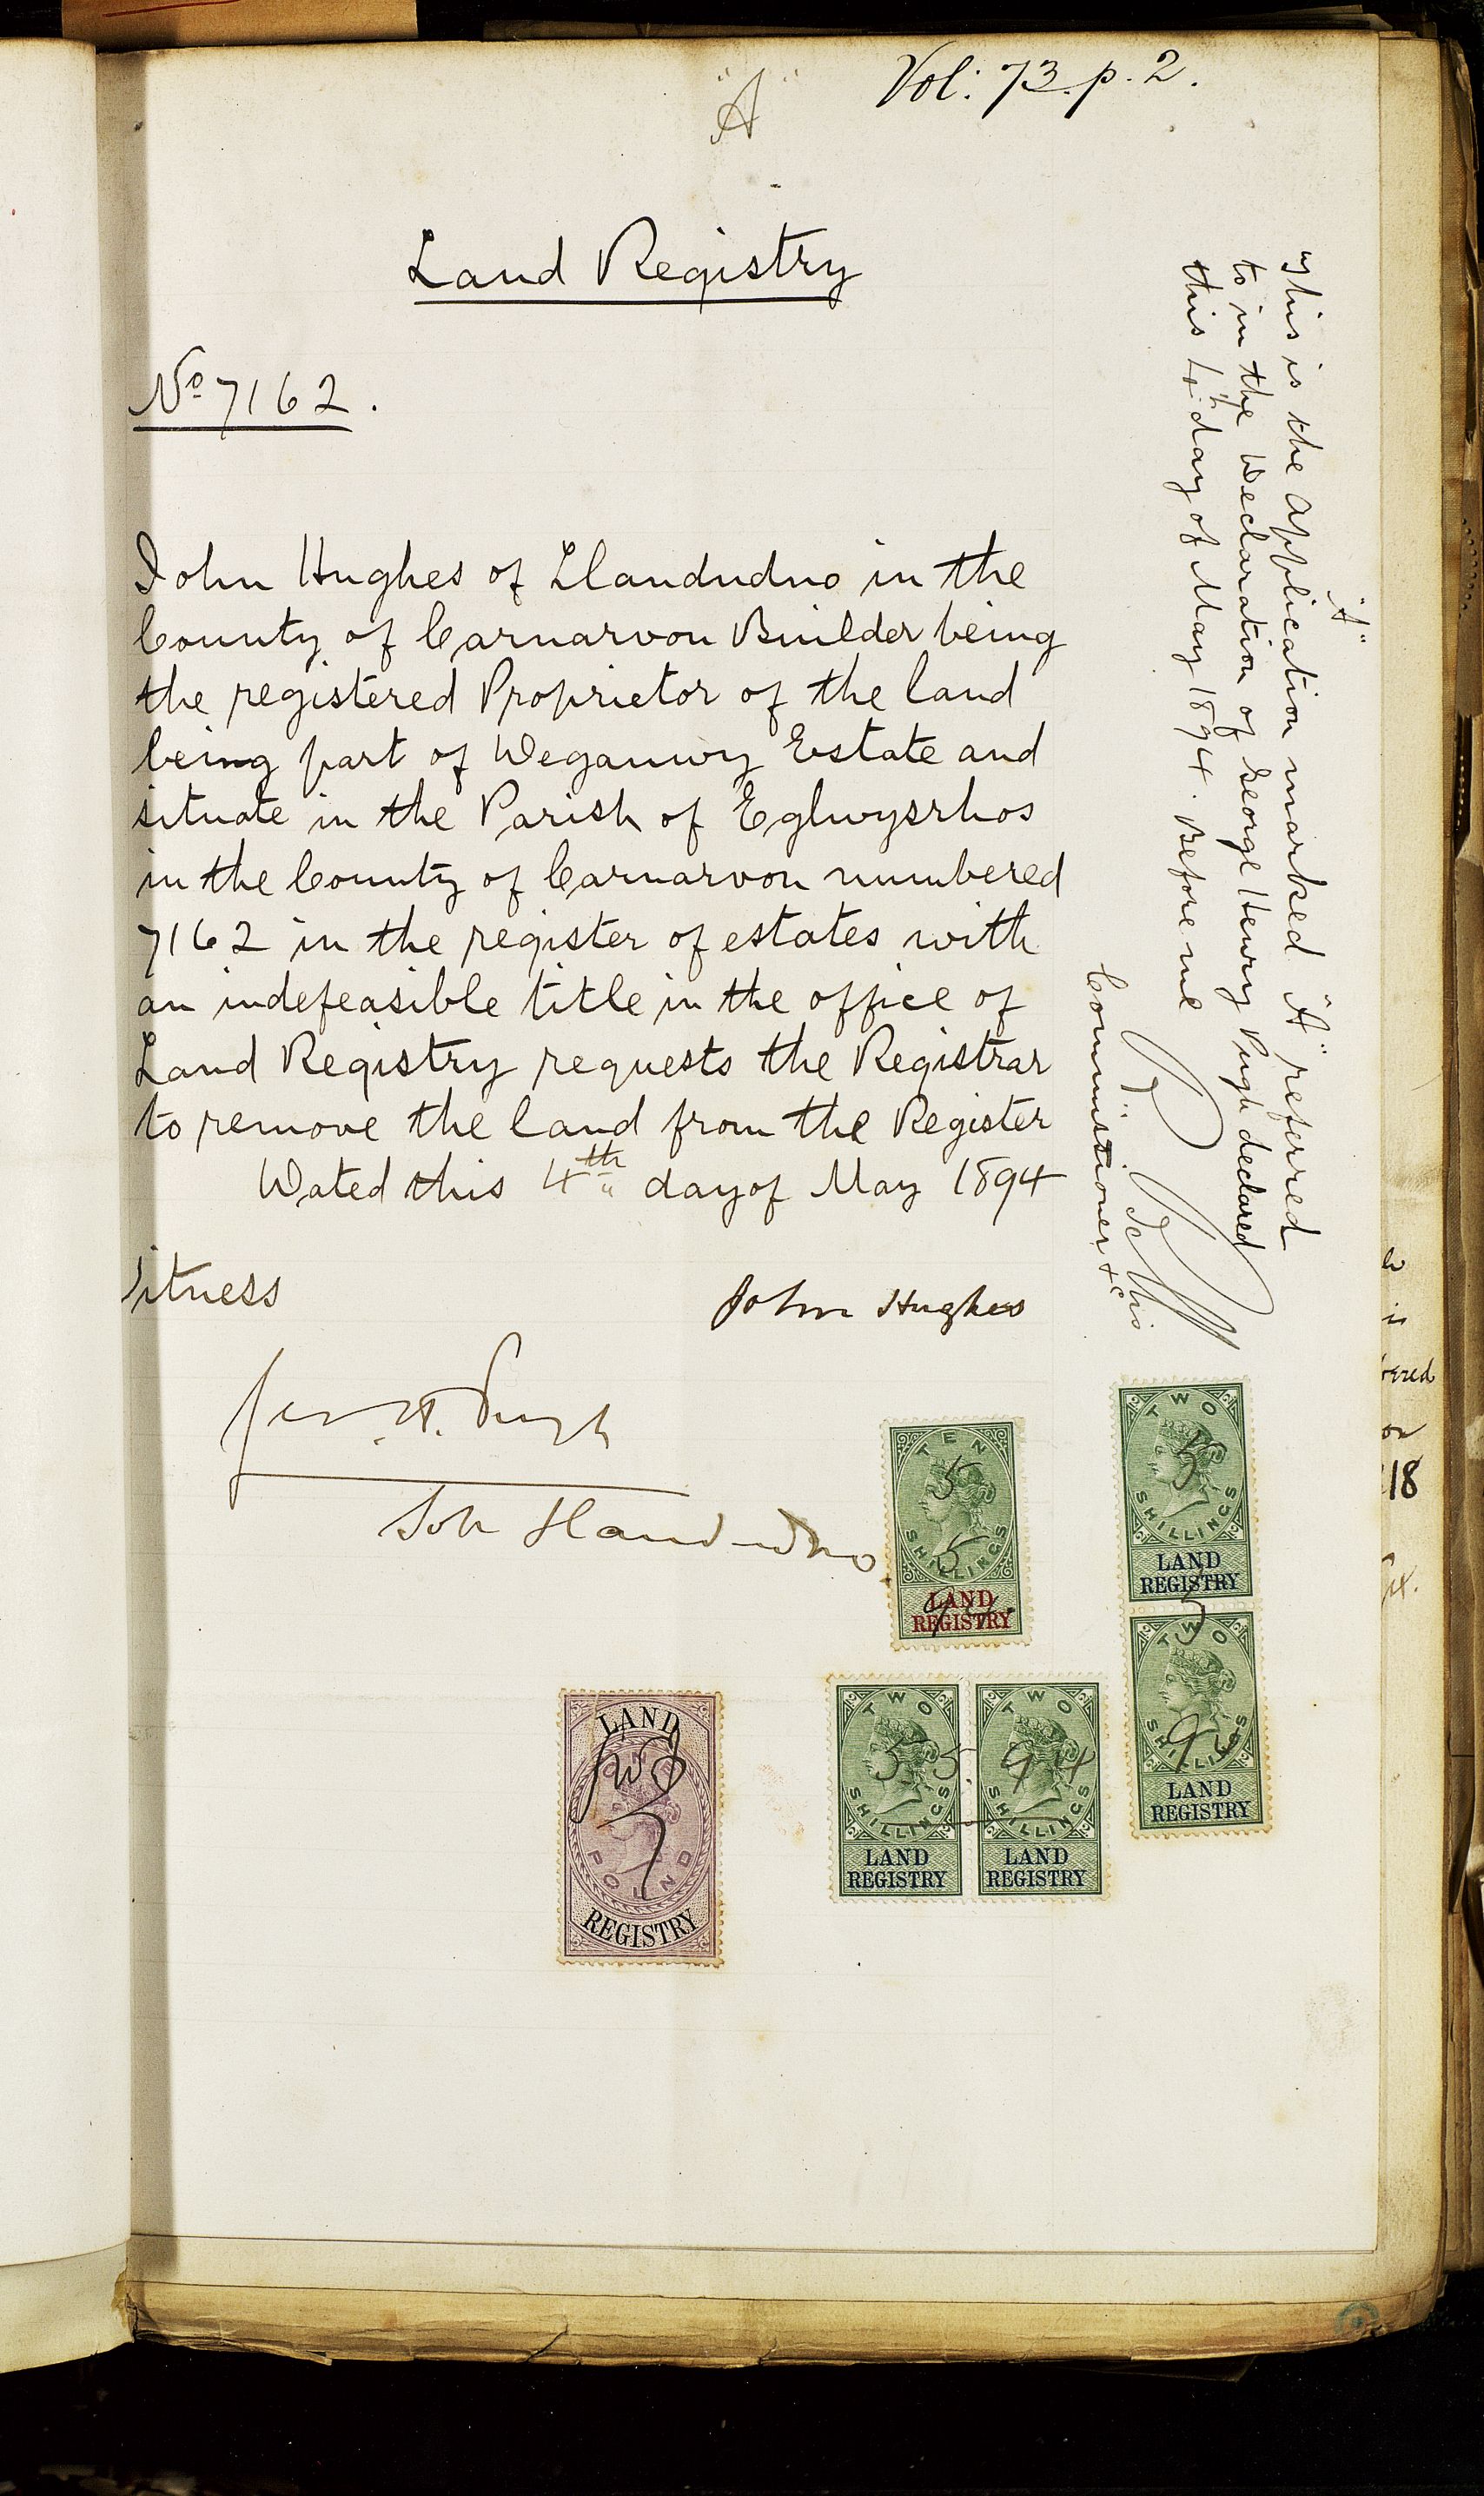 "A"
Vol: 73. p. 2.
Land Registry
No 7162.
I John Hughes of Llandudno in the
County of Carnarvon Builder being
the registered Proprietor of the land
being part of Deganwy Estate and
situate in the Parish of Eglwysrhos
in the County of Carnarvon numbered
7162 in the register of estates with
an indefeasible title in the office of
Land Registry requests the Registrar
to remove the land from the Register
Dated this 4th day of May 1894
itness
John Hughes
Geo. H. Pugh
Solr Llandudno
"A"
This is the application marked "A" referred
to in the Declaration of George Henry Pugh declared
this 4th day of May 1894. Before me
Commissioner &c
TEN SHILLINGS
5
5
94.
LAND
REGISTRY
TWO SHILLINGS
5
LAND
REGISTRY
5
TWO SHILLINGS
LAND
REGISTRY
TWO SHILLINGS
TWO SHILLINGS
5. 5. 94
LAND
REGISTRY
LAND
REGISTRY
LAND
ONE POUND
REGISTRY
bered
on
18